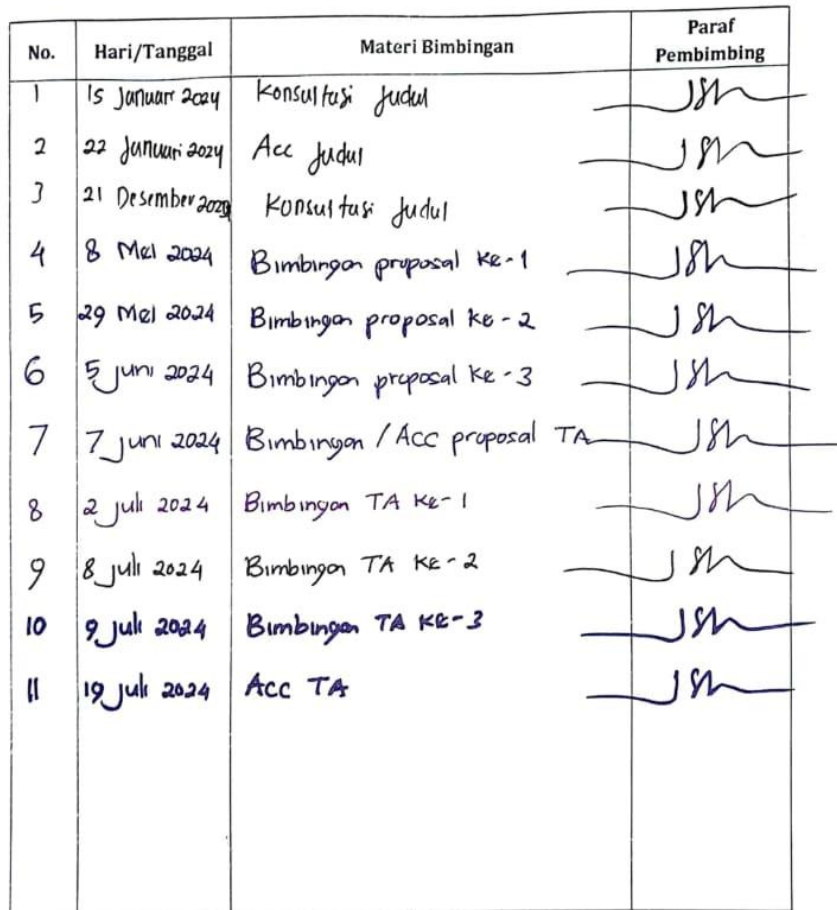 No. Hari/Tanggal Materi Bimbingan Paraf Pembimbing
1 15 Januari 2024 Konsultasi Judul
2 22 Januari 2024 Acc Judul
3 21 Desember Konsultasi Judul
4 8 Mei 2024 Bimbingan proposal ke-1
5 29 Mei 2024 Bimbingan proposal ke-2
6 5 Juni 2024 Bimbingan proposal ke-3
7 7 Juni 2024 Bimbingan / ACC proposal TA
8 2 Juli 2024 Bimbingan TA Ke-1
9 8 Juli 2024 Bimbingan TA KE-2
10 9 Juli 2024 Bimbingan TA KE-3
11 19 Juli 2024 Acc TA